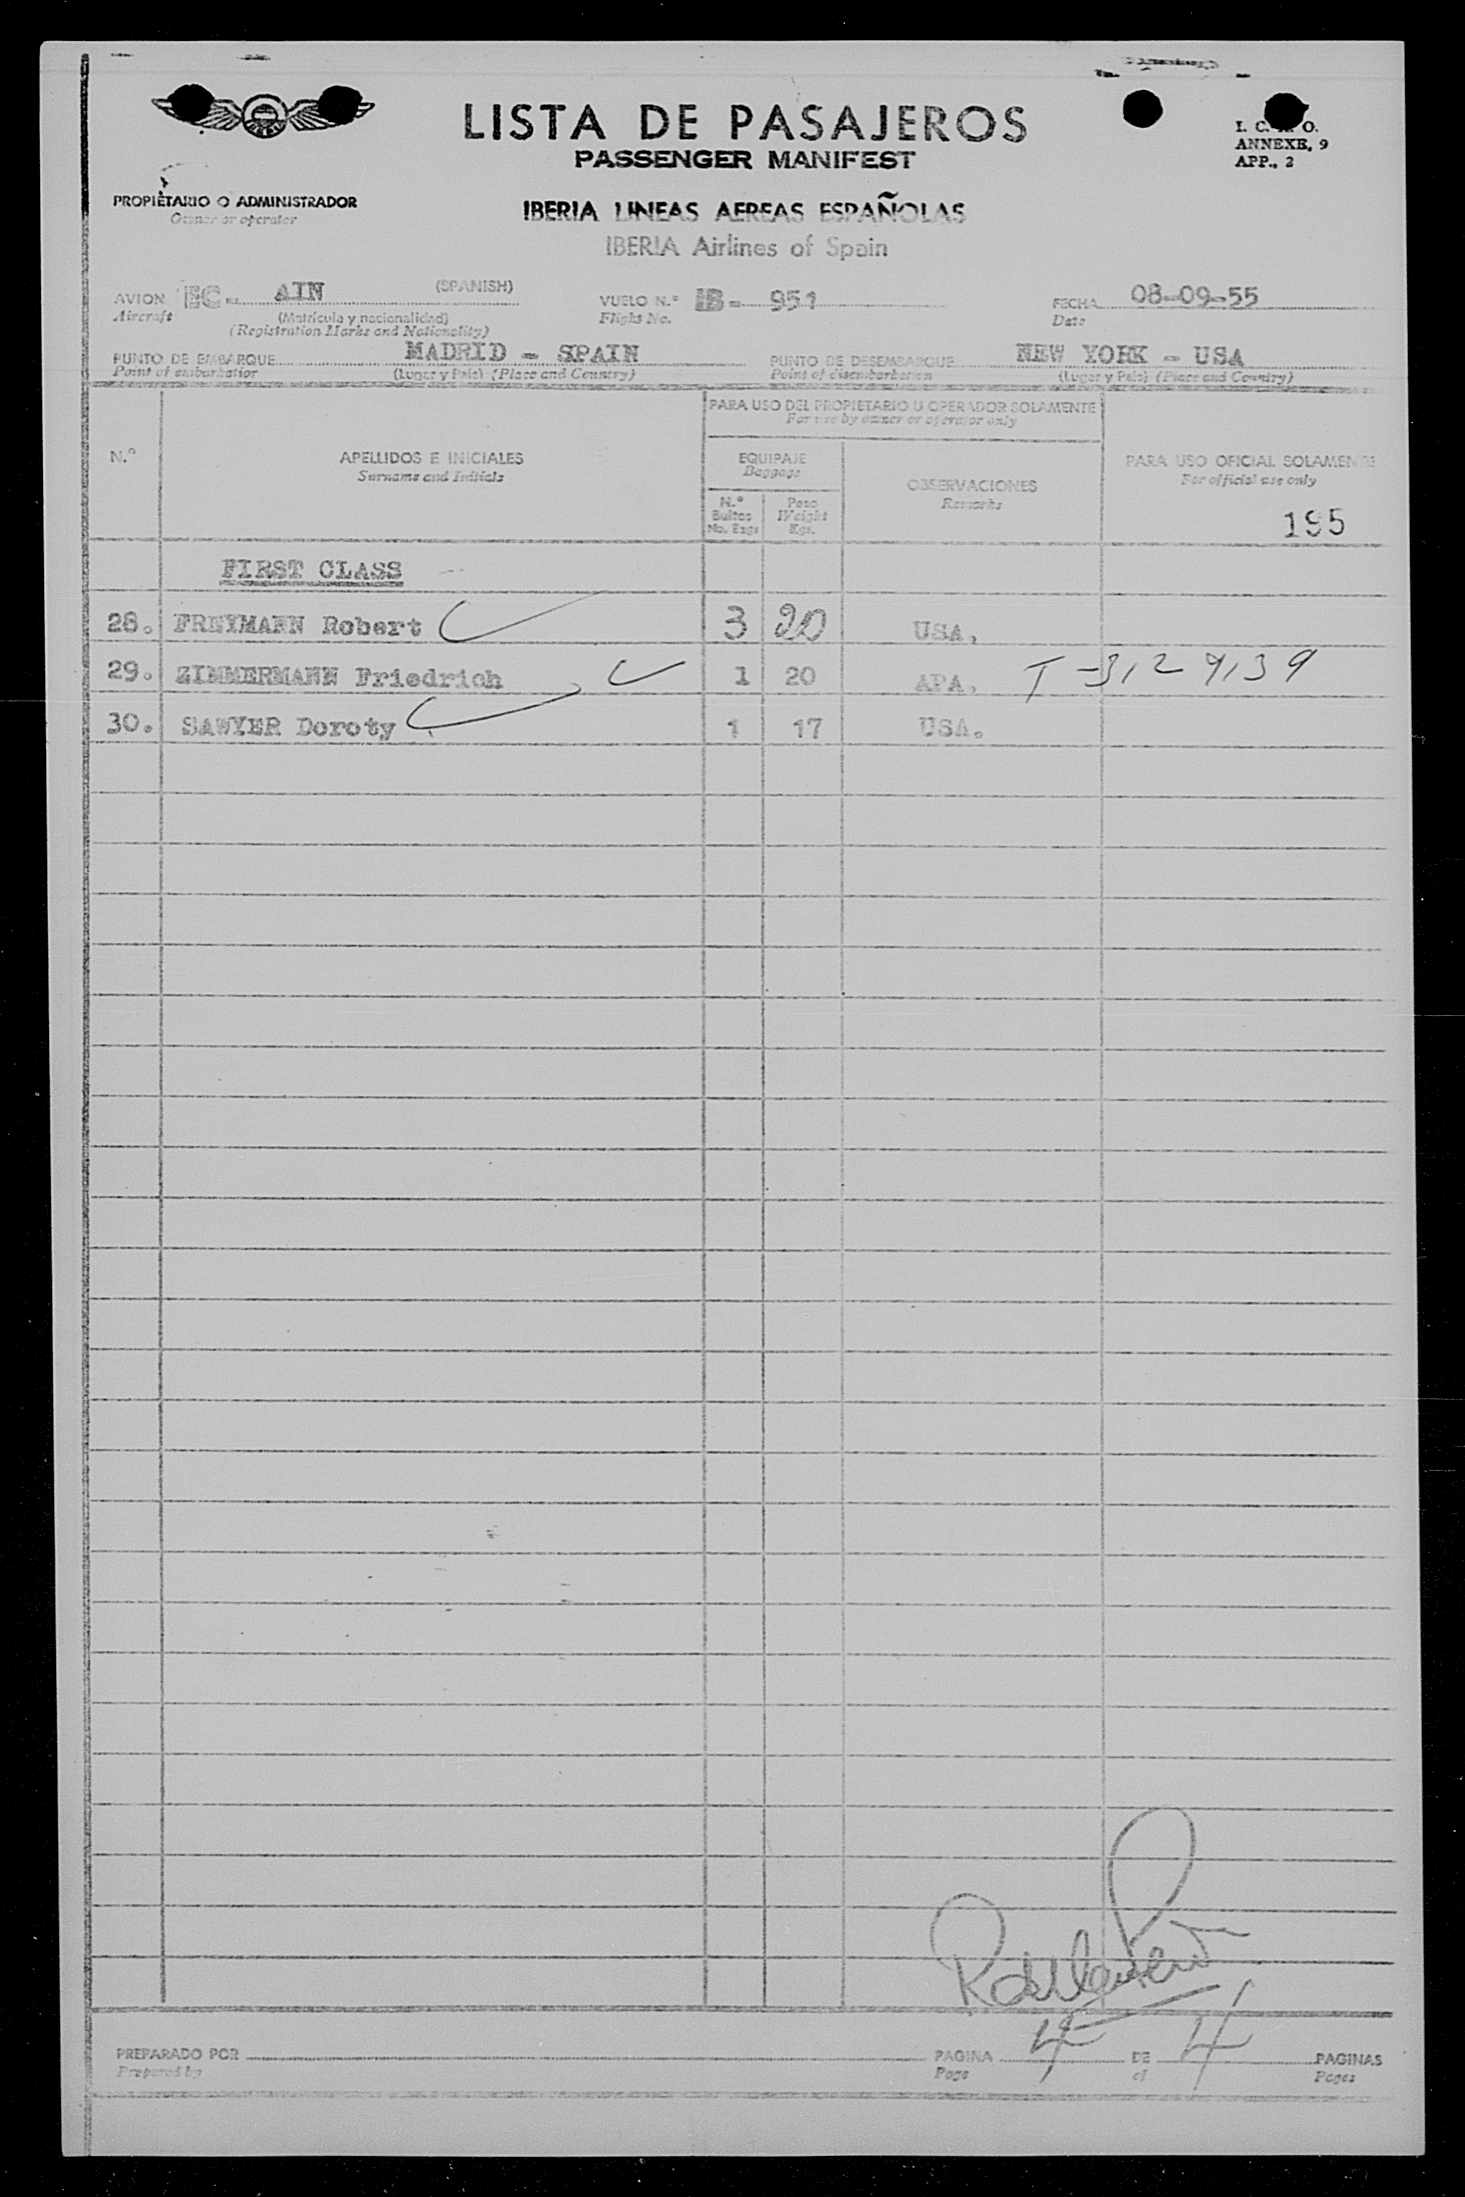 LISTA DE PASAJEROS
PASSENGER MANIFEST
I. C. O.
ANNEXE, 9
APP., 2
PROPIETARIO O ADMINISTRADOR
Owner or operator
IBERIA LINEAS AEREAS ESPAÑOLAS
IBERIA Airlines of Spain
AVION EC- AIN (SPANISH) VUELO N.º IB- 951 FECHA 08-09-55
Aircraft (Matrícula y nacionalidad) Flight No. Date
(Registration Marks and Nationality)
PUNTO DE EMBARQUE MADRID - SPAIN PUNTO DE DESEMBARQUE NEW YORK - USA
Point of embarkation (Lugar y País) (Place and Country) Point of disembarkation (Lugar y País) (Place and Country)
PARA USO DEL PROPIETARIO U OPERADOR SOLAMENTE
For use by owner or operator only
N.º APELLIDOS E INICIALES EQUIPAJE OBSERVACIONES PARA USO OFICIAL SOLAMENTE
Surname and Initials Baggage Remarks For official use only
N.º Bultos Peso
No. Bags Weight Kgs.
195
FIRST CLASS
28. FREYMANN Robert 3 20 USA,
29. ZIMMERMANN Friedrich 1 20 APA, T-3129139
30. SAWYER Doroty 1 17 USA.
PREPARADO POR PAGINA 4 DE 4 PAGINAS
Prepared by Page of Pages